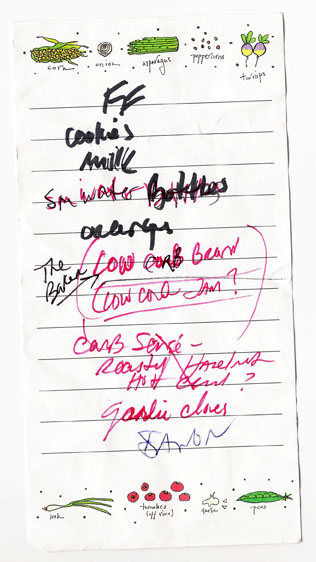 corn onion asparagus peppercorns turnips
FF
cookies
milk
Sm water Bottles
oranges
The Baker
Low carb Bread
Low carb Jam?
Carb Sense -
Roasty Hazelnut
Hot ?
garlic cloves
leek tomatoes (off vine) garlic peas